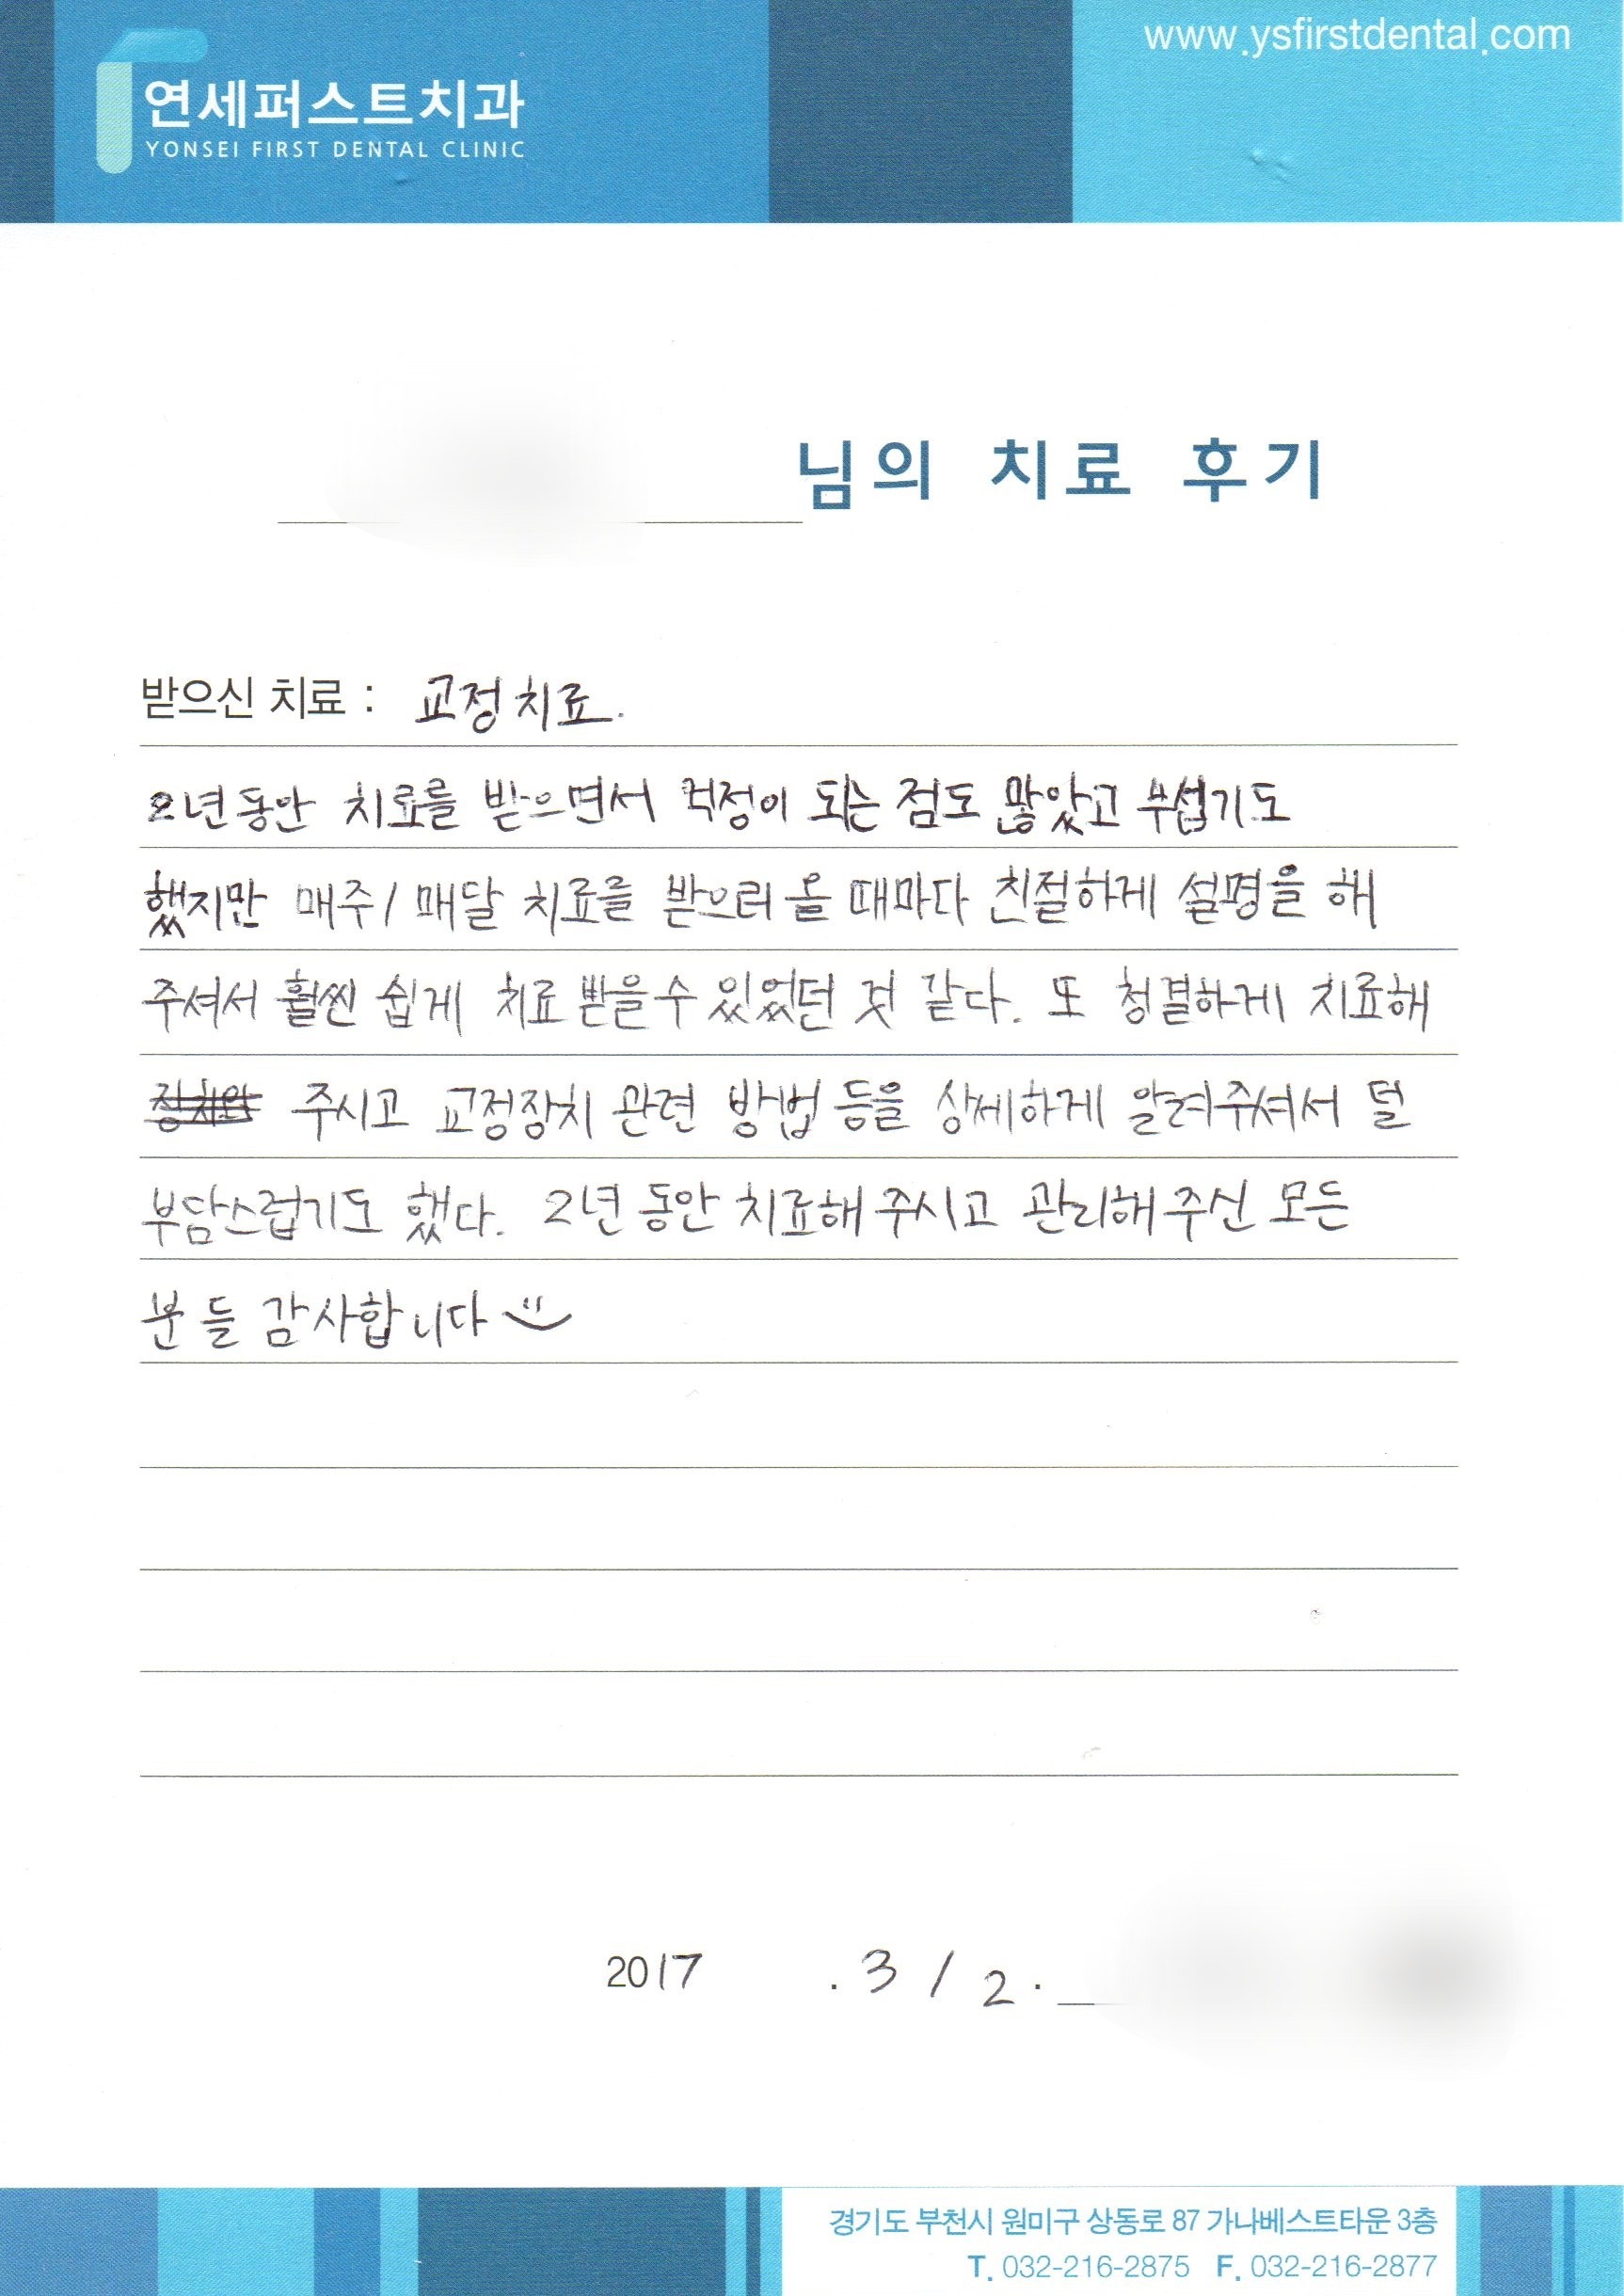 www.ysfirstdental.com
연세퍼스트치과
YONSEI FIRST DENTAL CLINIC
님의 치료 후기
받으신 치료 : 교정치료.
2년동안 치료를 받으면서 걱정이 되는 점도 많았고 무섭기도
했지만 매주/매달 치료를 받으러 올 때마다 친절하게 설명을 해
주셔서 훨씬 쉽게 치료 받을 수 있었던 것 같다. 또 청결하게 치료해
주시고 교정장치 관련 방법 등을 상세하게 알려주셔서 덜
부담스럽기도 했다. 2년 동안 치료해 주시고 관리해 주신 모든
분들 감사합니다
2017 . 3 / 2 .
경기도 부천시 원미구 상동로 87 가나베스트타운 3층
T. 032-216-2875 F. 032-216-2877